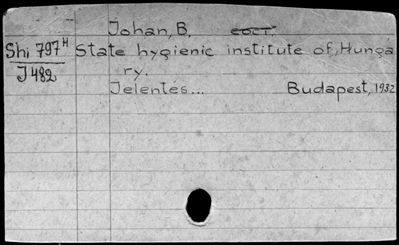 Johan, B. сост.
Shi 797H State hygienic institute of Hunga
J482 ry.
Jelentés... Budapest, 1932